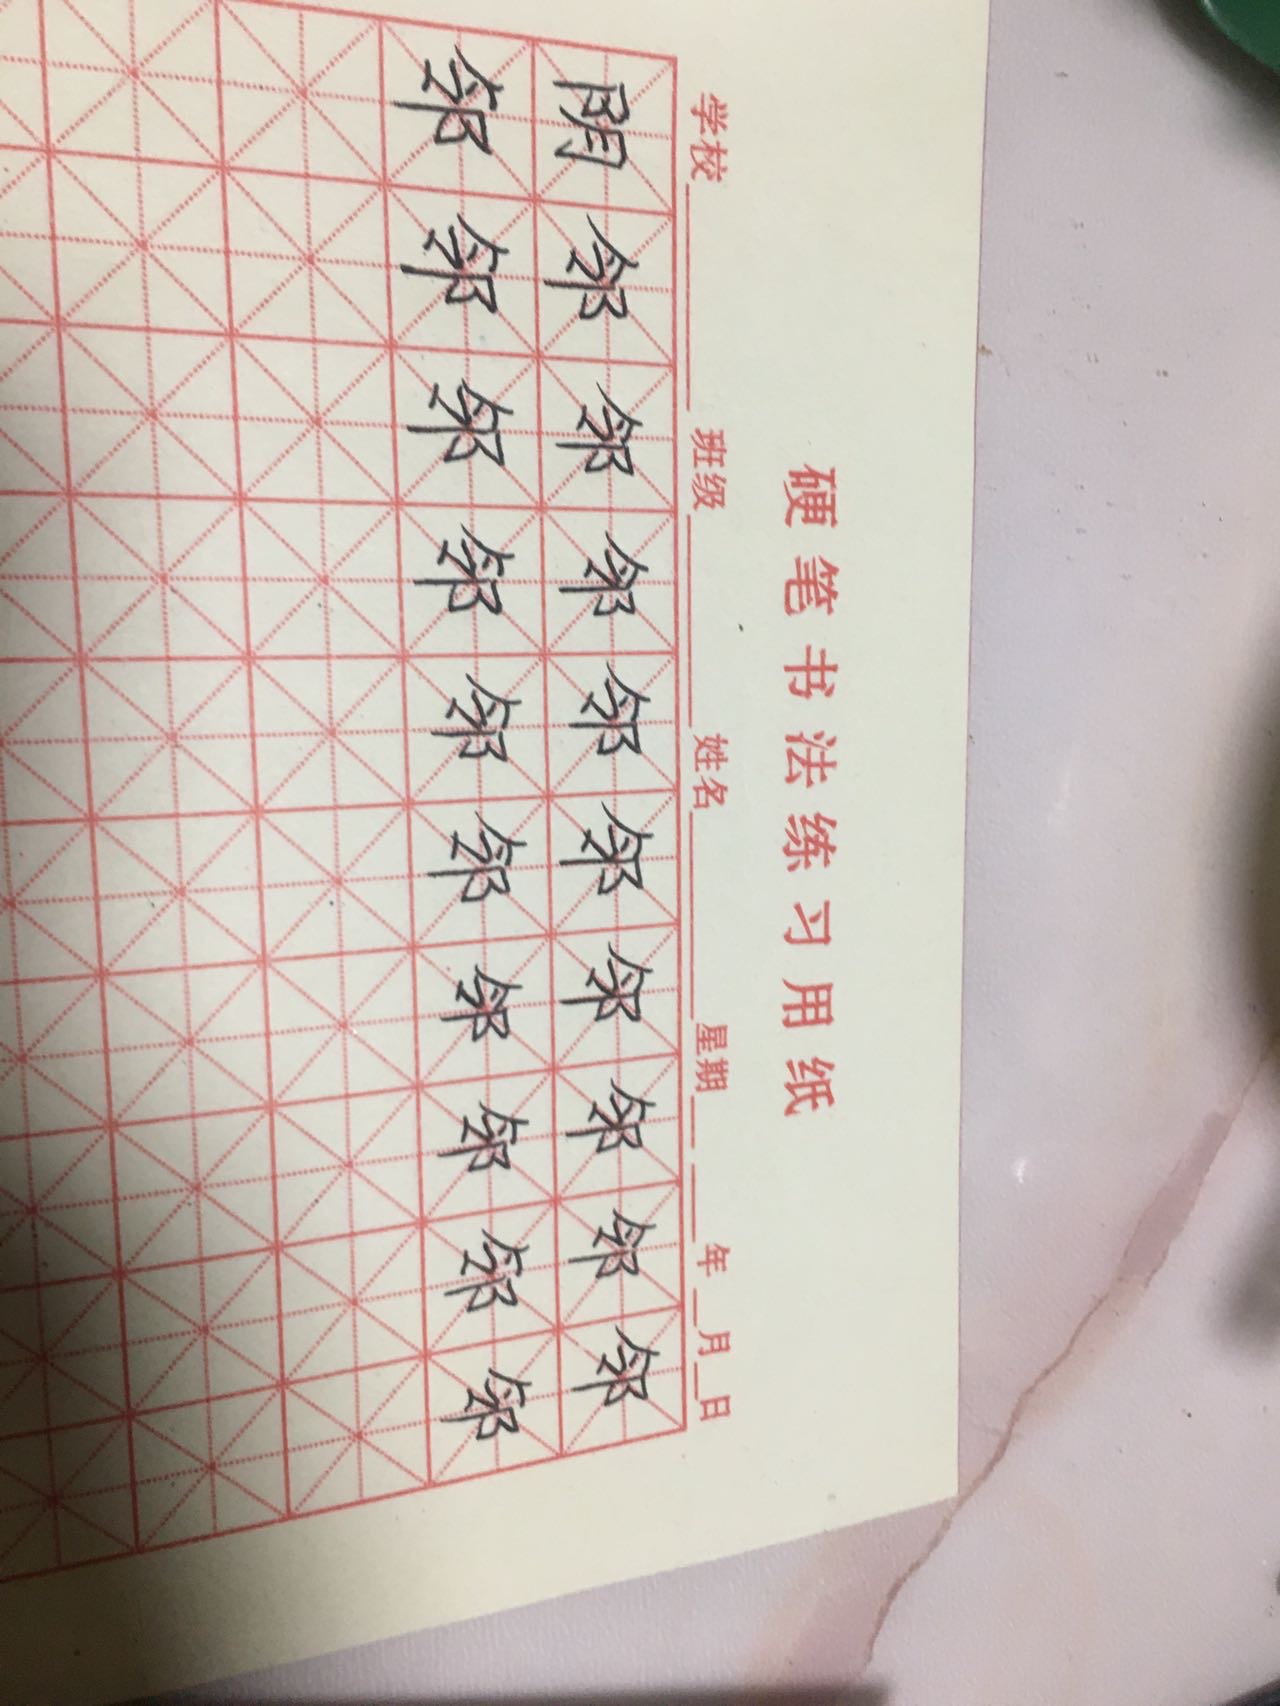 硬笔书法练习用纸
学校______班级______姓名______星期____年__月__日
阴邻邻邻邻邻邻邻邻邻
邻邻邻邻邻邻邻邻邻邻